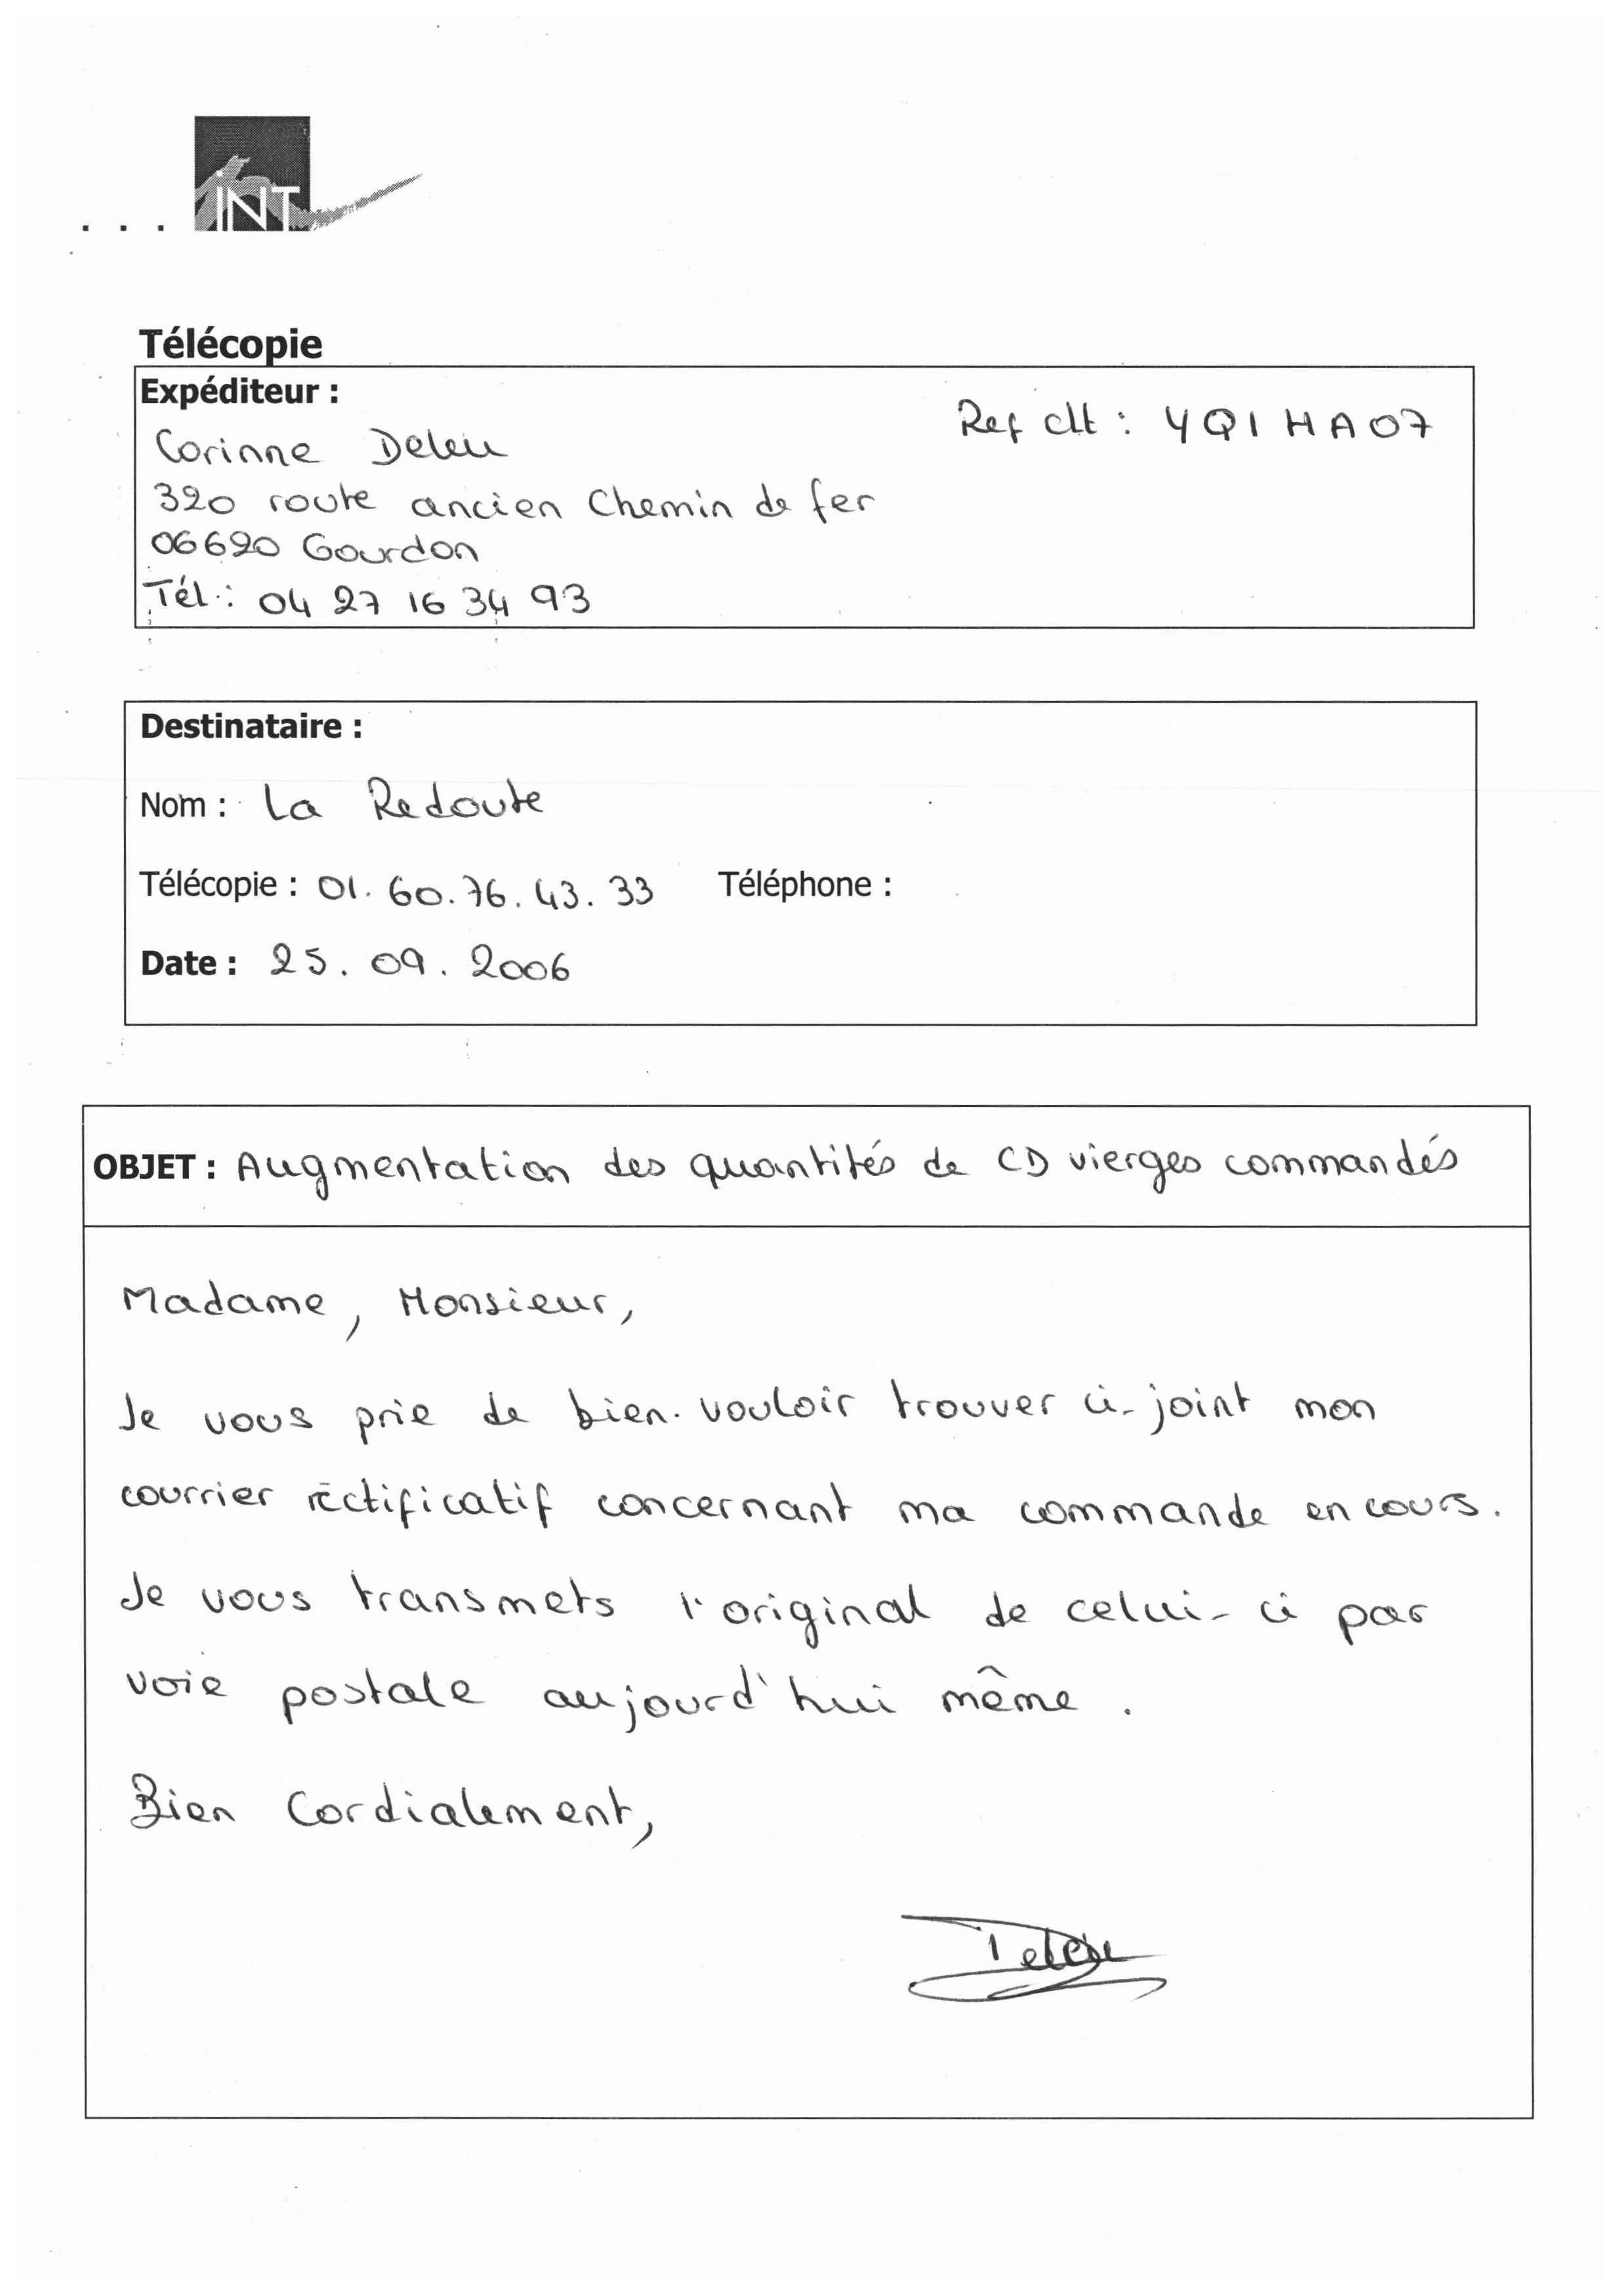 ... iNT
Télécopie
Expéditeur :
Ref clt : YQ1HA07
Corinne Deleu
320 route ancien Chemin de fer
06620 Gourdon
Tél : 04 27 16 34 93
Destinataire :
Nom : La Redoute
Télécopie : 01. 60. 76. 43. 33 Téléphone :
Date : 25. 09. 2006
OBJET : Augmentation des quantités de CD vierges commandés
Madame, Monsieur,
Je vous prie de bien vouloir trouver ci-joint mon
courrier réctificatif concernant ma commande en cours.
Je vous transmets l'original de celui-ci par
voie postale aujourd'hui même.
Bien Cordialement,
Deleu